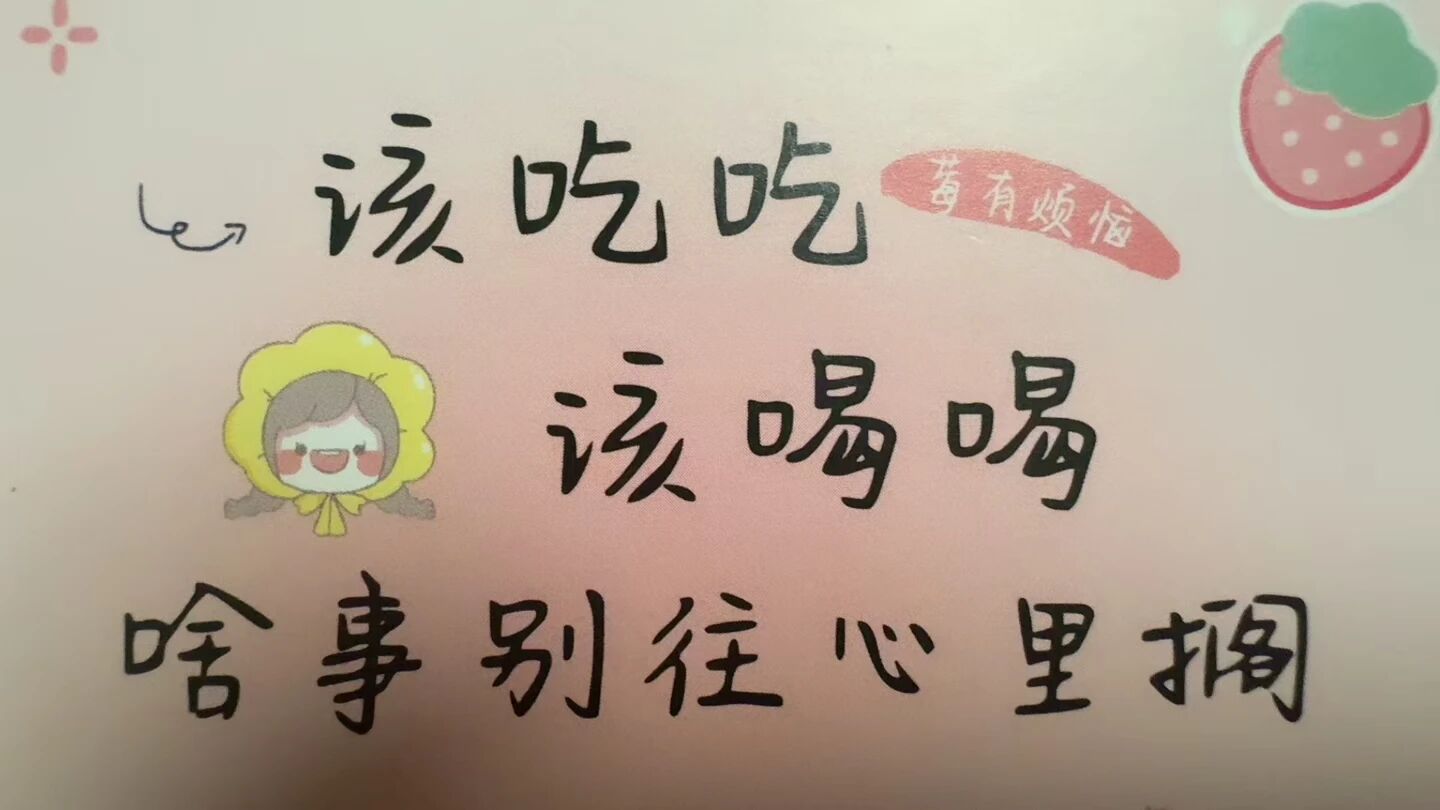 该吃吃
莓有烦恼
该喝喝
啥事别往心里搁